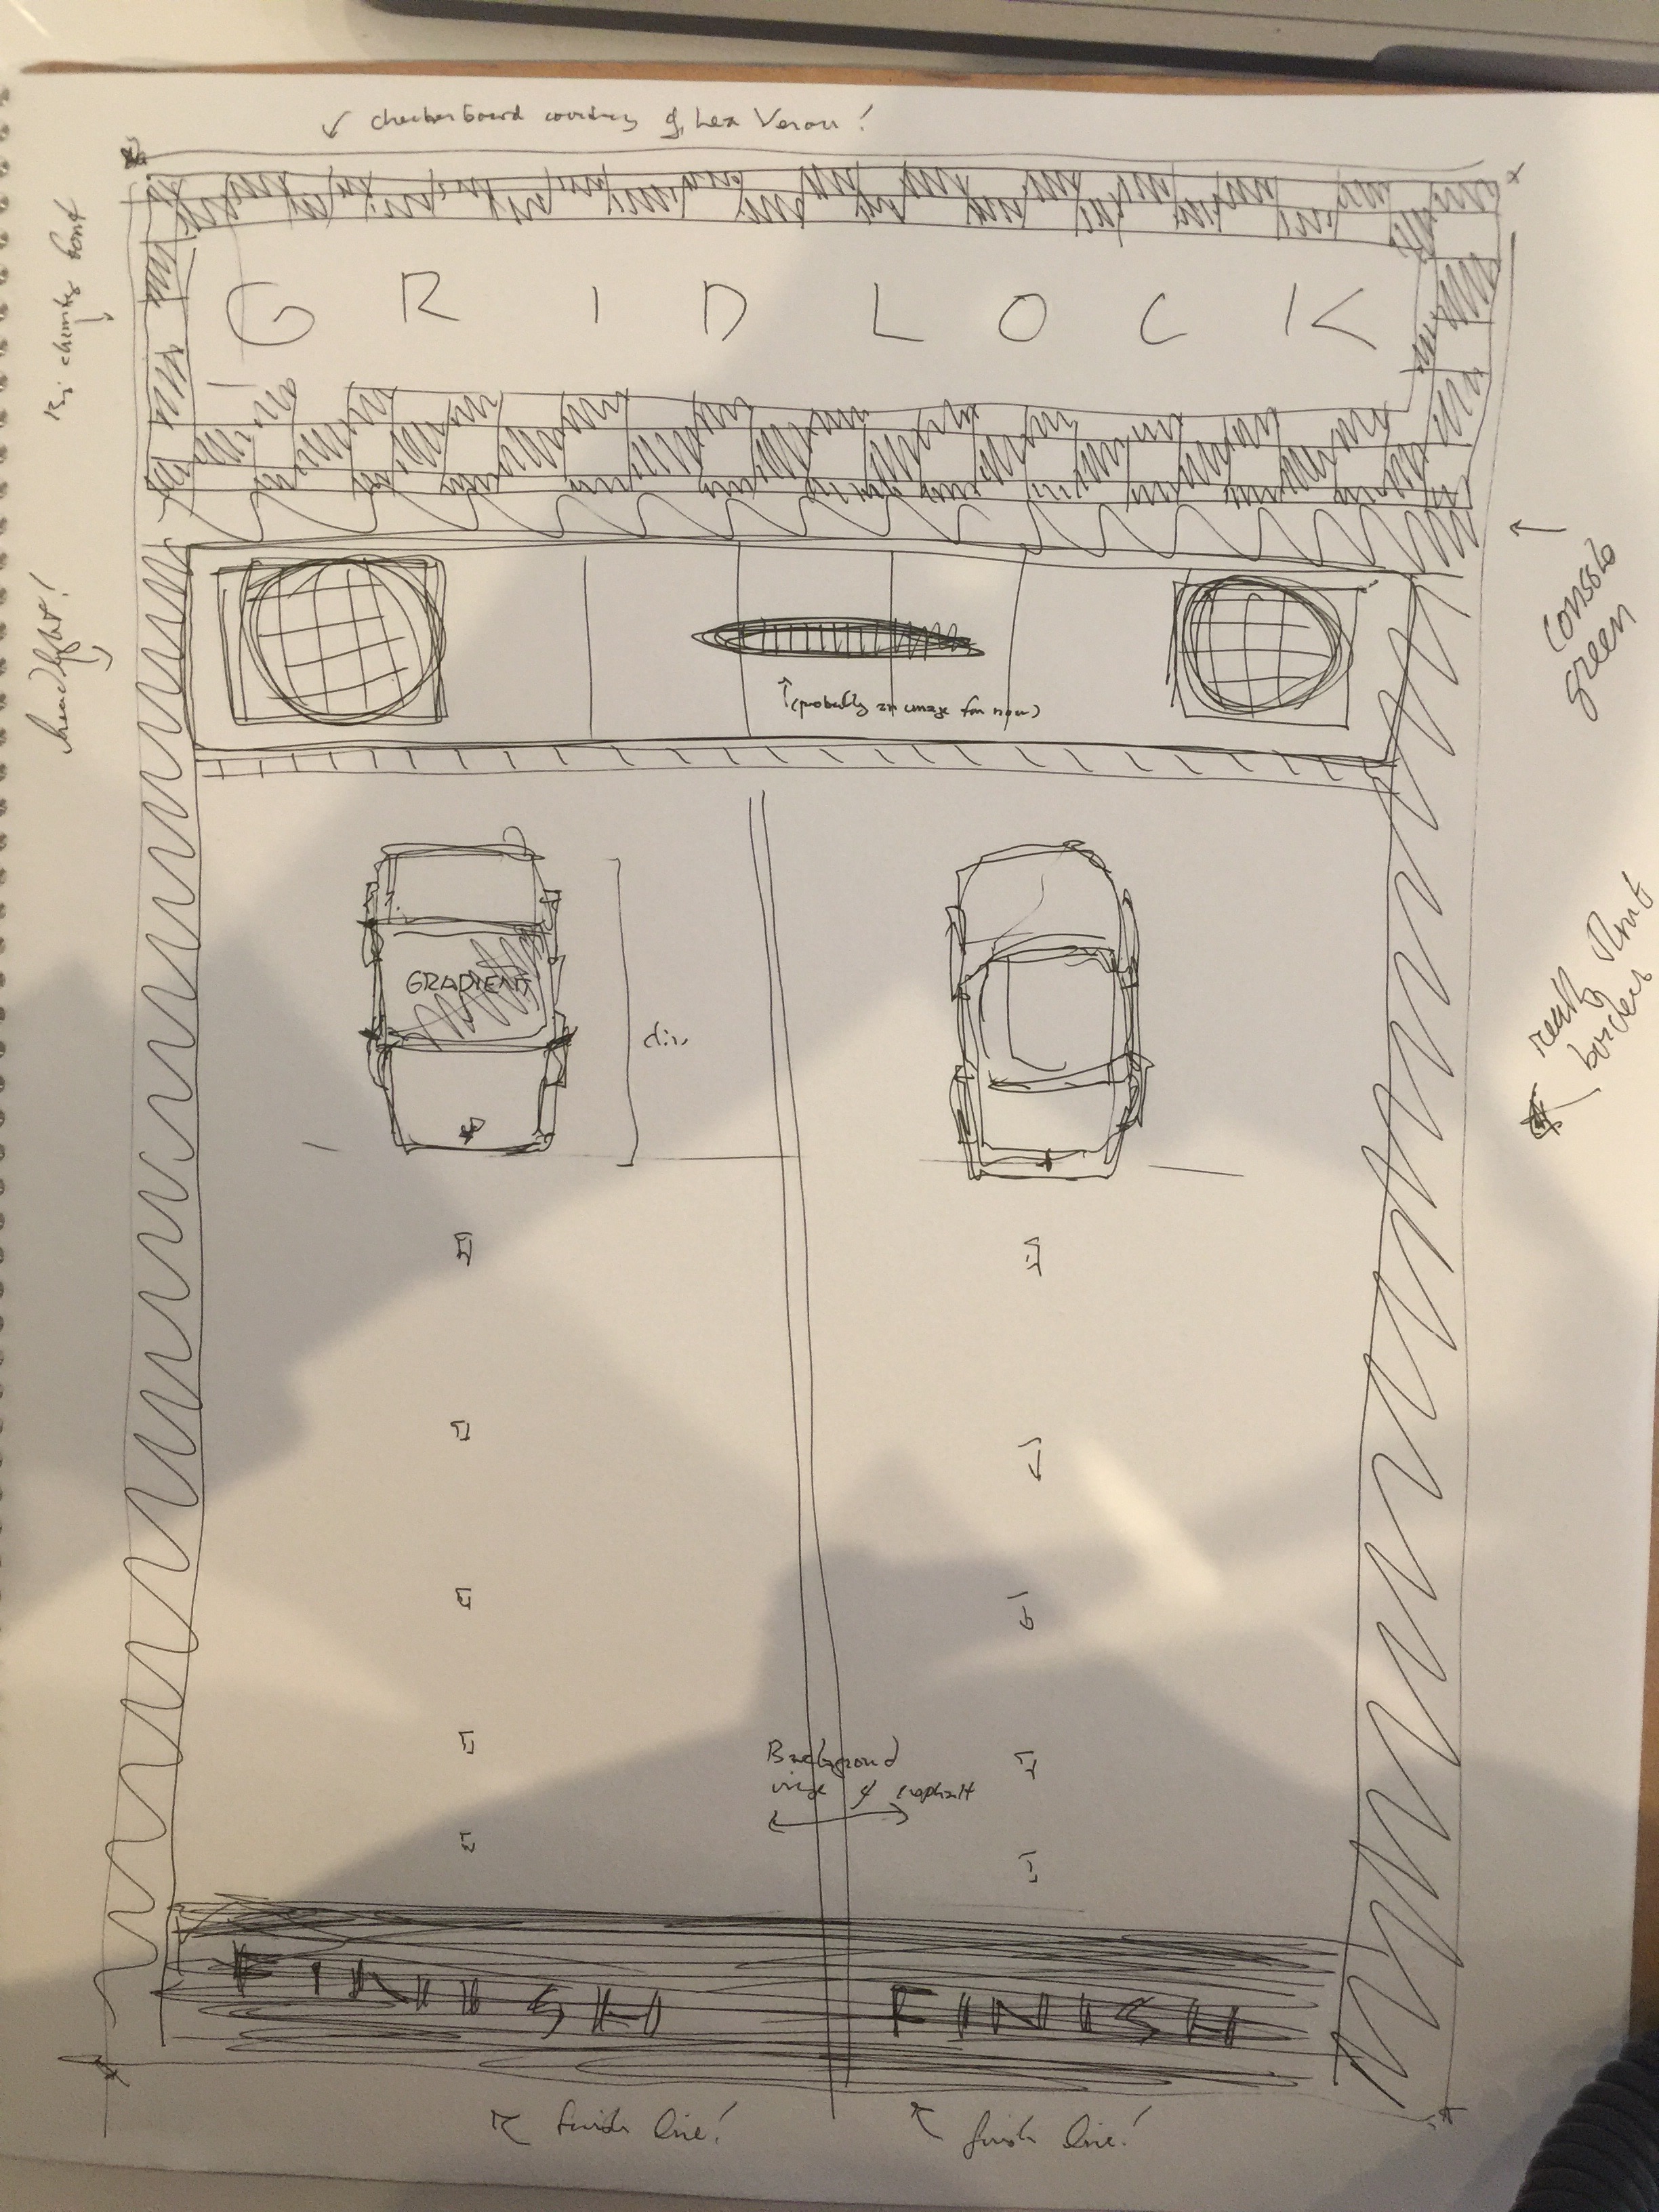 checkerboard courtesy of Lea Verou!
font
G R I D L O C K
headlight!
console
green
(probably an image for now)
really
border
GRADIENT
div
Background
image of asphalt
FINISH FINISH
finish line! finish line!